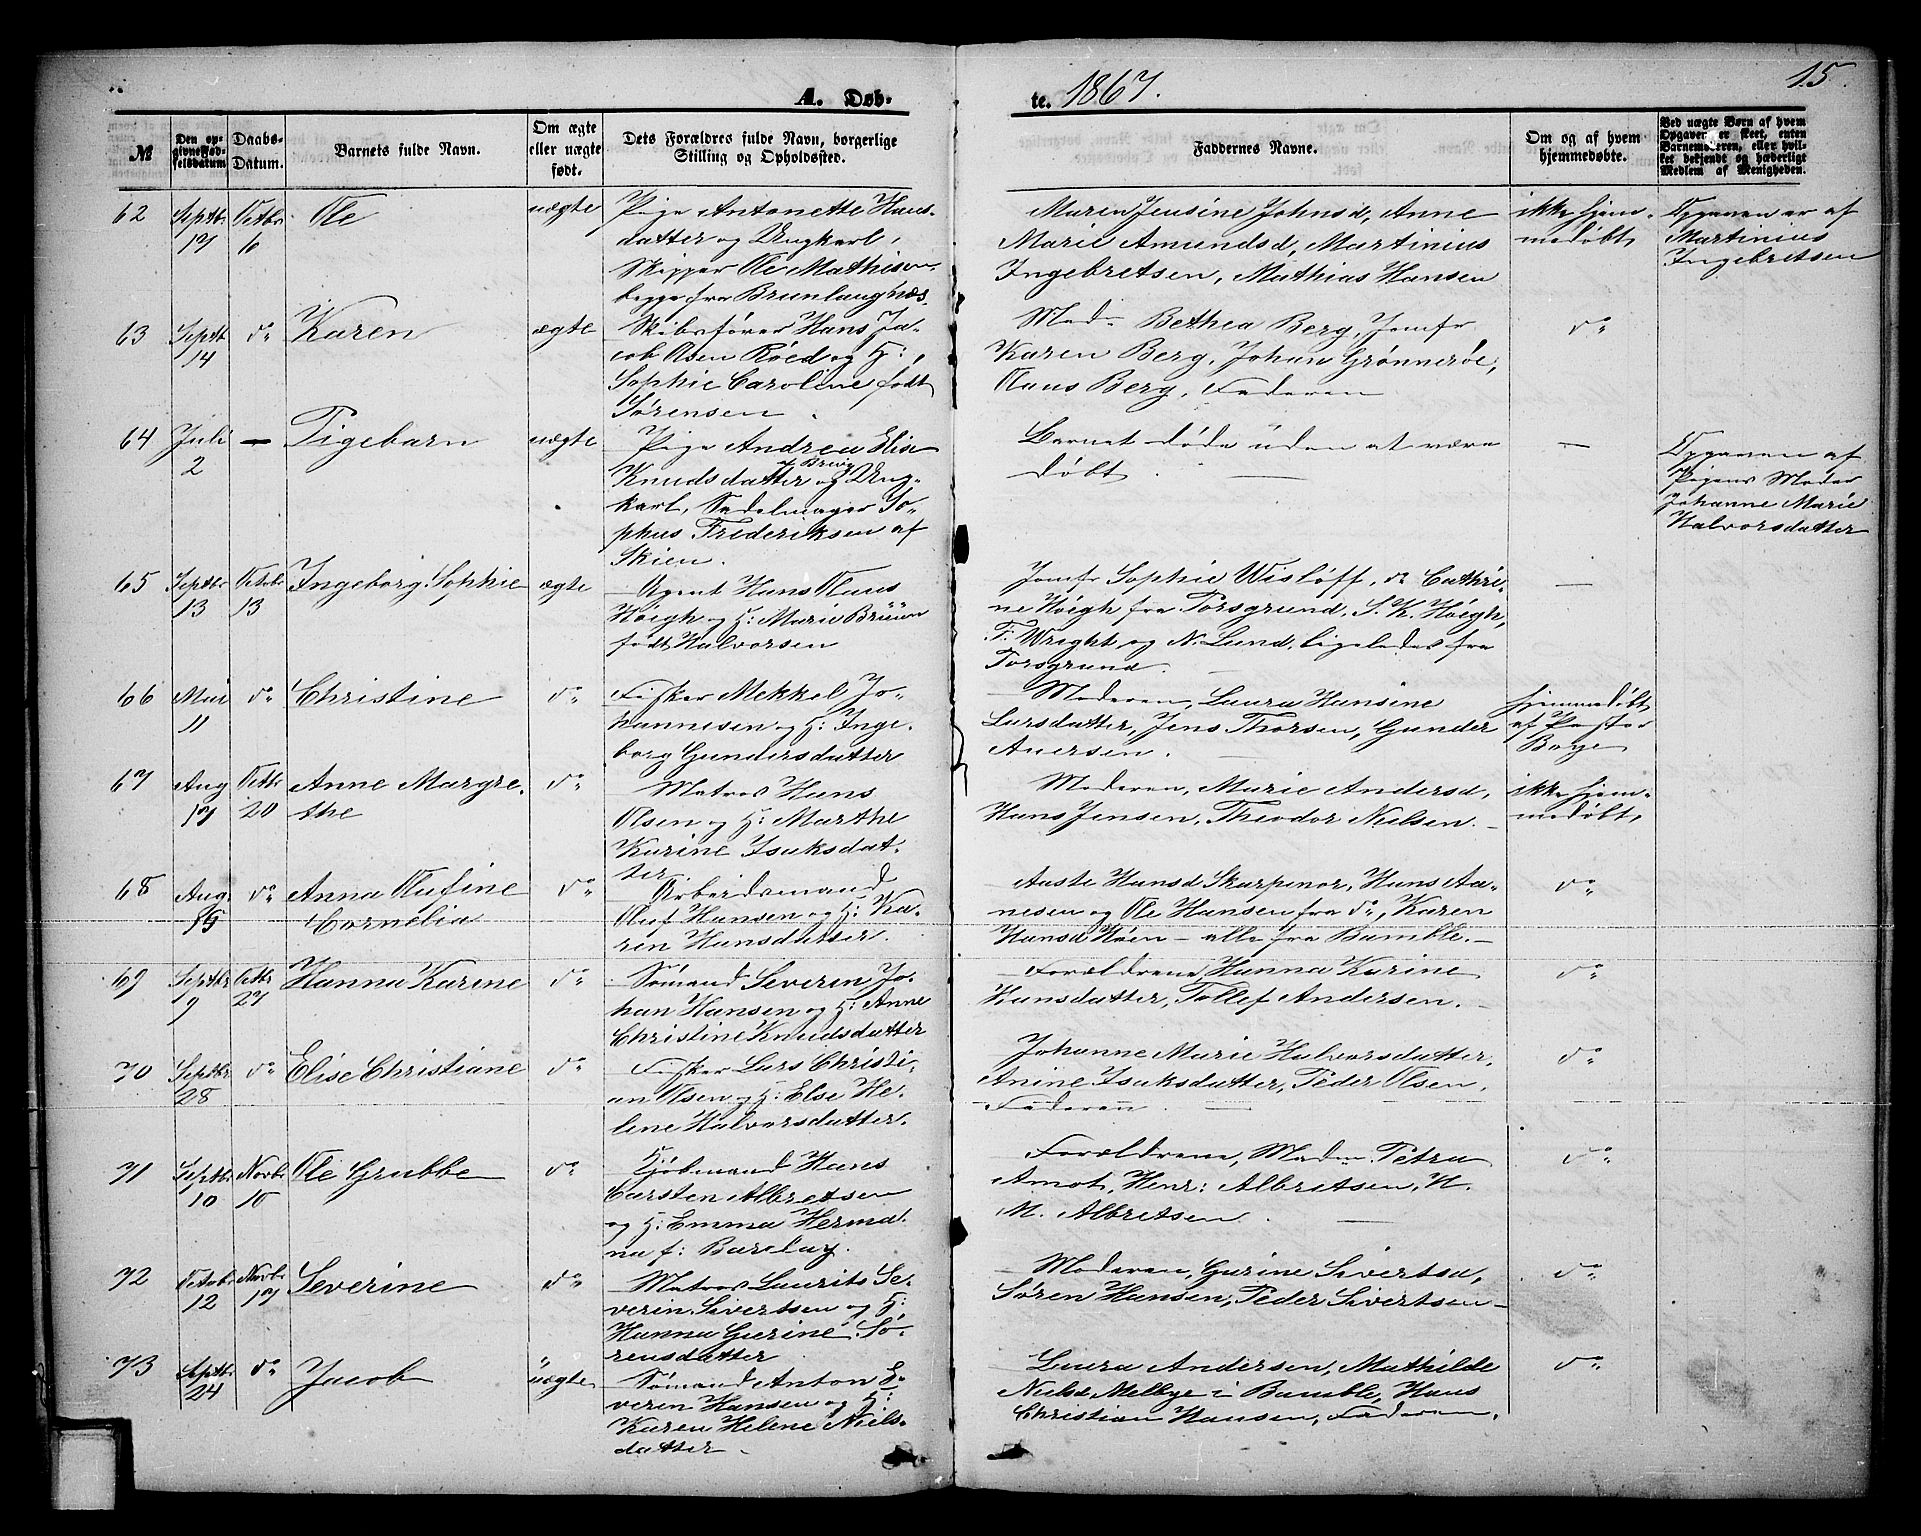 A. Døb-
te. 1867.
15.
№
Den op-
givne Fød-
selsdatum
Daabs-
Datum.
Barnets fulde Navn.
Om ægte
eller uægte
født.
Dets Forældres fulde Navn, borgerlige
Stilling og Opholdssted.
Faddernes Navne.
Om og af hvem
hjemmedøbte.
Ved uægte Børn af hvem
Opgaver er skeet, enten
Barnemoderen, eller hvil-
ket bekjendt og hæderligt
Medlem af Menigheden.
62
Septbr
17
Octbr
6
Ole
uægte
Pige Antonette Hans-
datter og Ungkarl,
Skipper Ole Mathisen
begge fra Brunlaugnæs.
Maren Jensine Johnsd, Anne
Marie Amundsd, Martinius
Ingebretsen, Mathias Hansen
ikke hjem-
medøbt
Opgaven er af
Martinius
Ingebretsen
63
Septb
14
do
Karen
ægte
Skibsfører Hans Ja-
cob Olsen Röed og H:
Sophie Caroline født
Sørensen
Mad. Bethea Berg, Jomfr
Karen Berg, Johan Grønneröe,
Claus Berg, Faderen
do
64
Juli
2
—
Pigebarn
uægte
Pige Andrea Elise
Knudsdatter af Brevig og Ung-
karl, Sadelmager So-
phus Frederiksen af
Skien.
Barnet døde uden at være
døbt.
—
Opgaven af
Pigens Moder
Johanne Marie
Halvorsdatter
65
Septbr
13
Octbr
13
Ingeborg Sophie
ægte
Agent Hans Claus
Höigh og H: Marie Brüün
født Halvorsen
Jomfr Sophie Wisløff, do Cathri-
ne Höigh fra Porsgrund, S. K. Höigh,
F: Wright og N. Lund, ligeledes fra
Porsgrund.
—
66
Mai
11
do
Christine
do
Fisker Mekkel Jo-
hannesen og H: Inge-
borg Gundersdatter
Moderen, Laura Hansine
Larsdatter, Jens Thorsen, Gunder
Aversen.
hjemmedøbt
af Pastor
Boye
67
Aug
17
Octbr
20
Anne Margre-
the
do
Matros Hans
Olsen og H: Marthe
Karine Isaksdat-
ter.
Moderen, Marie Andersd,
Hans Jensen, Theodor Nielsen.
ikke hjem-
medøbt,
68
Aug
15
do
Anna Olufine
Cornelia
do
Arbeidsmand
Oluf Hansen og H: Ka-
ren Hansdatter.
Aaste Hansd Skarpenor, Hans Aa-
nesen og Ole Hansen fra do, Karen
Hansd Höen – alle fra Bamble.
do
69
Septbr
9
Octbr
27
Hanna Karine
do
Sømand Severin Jo-
han Hansen og H: Anne
Christine Knudsdatter
Forældrene, Hanna Karine
Hansdatter, Tollef Andersen.
do
70
Septbr
28
do
Elise Christiane
do
Fisker Lars Christi-
an Olsen og H: Else He-
lene Halvorsdatter.
Johanne Marie Halvorsdatter,
Anine Isaksdatter, Peder Olsen,
Faderen.
do
71
Septbr
10
Novbr
10
Ole Grubbe
do
Kjøbmand Hans
Carsten Albretsen
og H: Emma Herma-
na f: Barclay.
Forældrene, Madm Petra
Amot, Henr: Albretsen, N.
M. Albretsen.
do
72
Octobr
12
Novbr
17
Severine
do
Matros Laurits Se-
verin Sivertsen og H:
Hanna Gurine Sö-
rensdatter
Moderen, Gurine Sivertsd,
Sören Hansen, Peder Sivertsen
do
73
Septbr
24
do
Jacob
uægte
Sømand Anton E-
verin Hansen og H:
Karen Helene Niels-
datter
Laura Andersen, Mathilde
Nielsd Melbye i Bamble, Hans
Christian Hansen, Faderen.
do